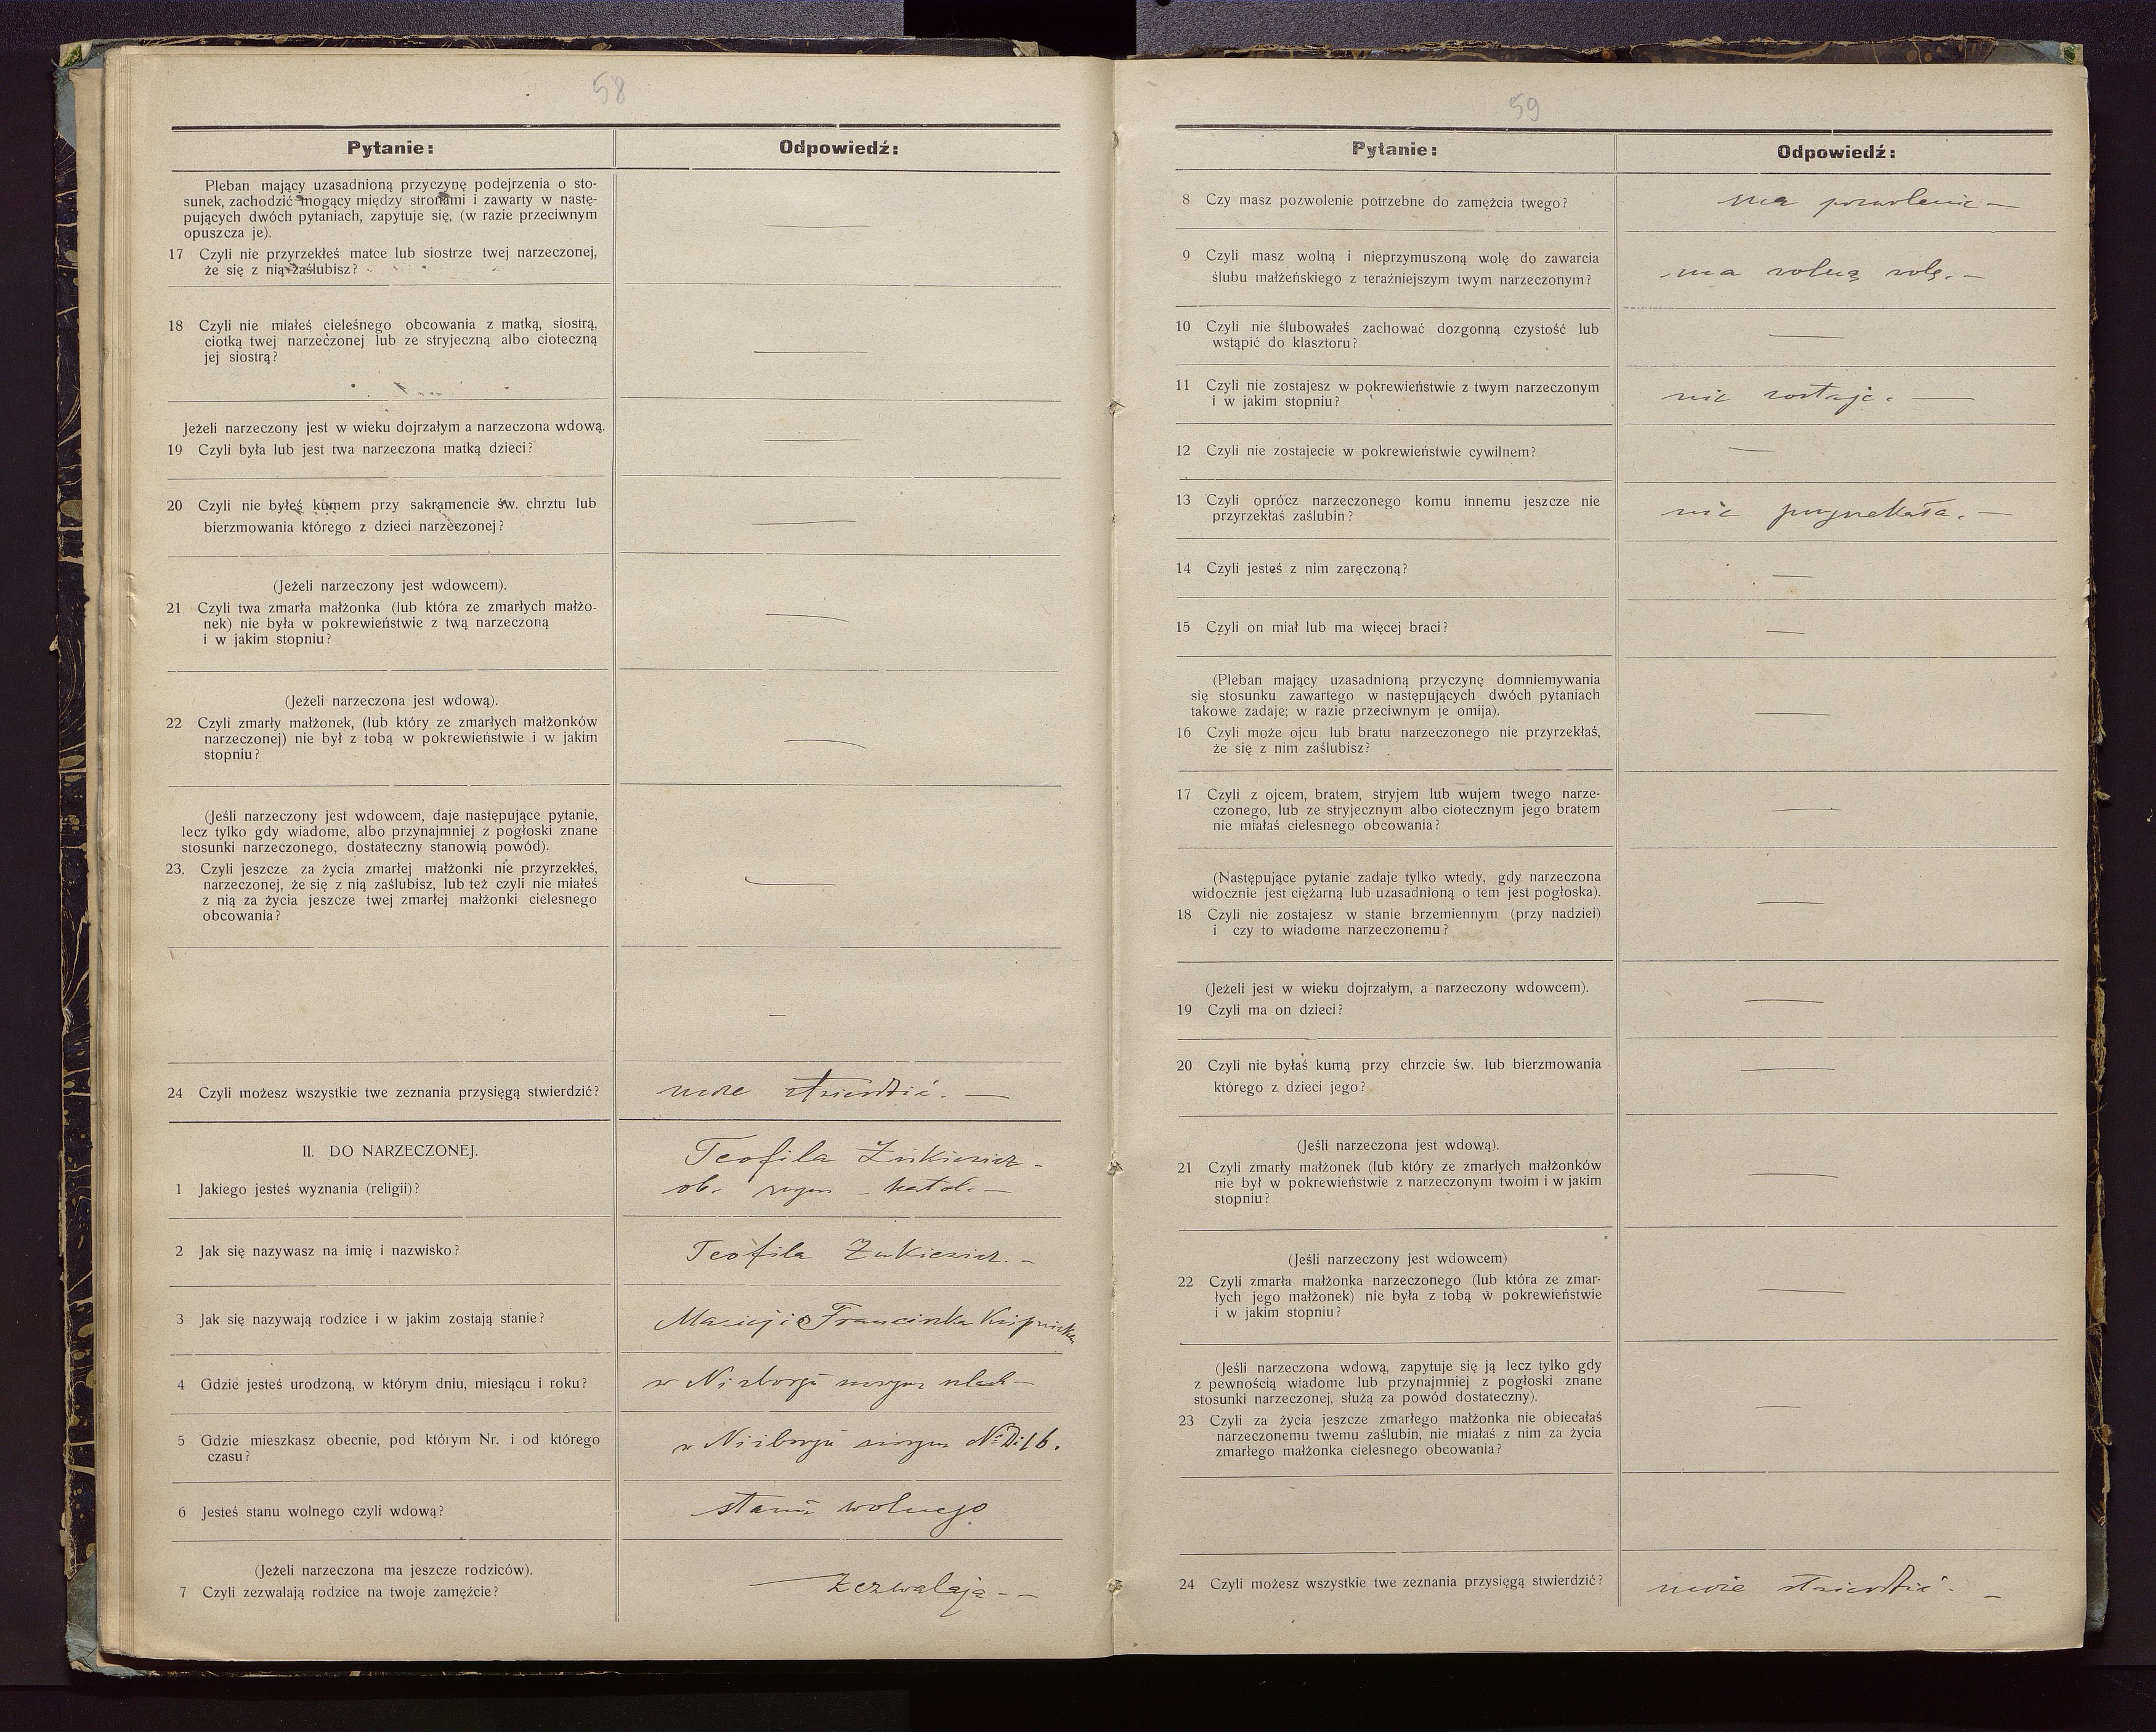 58
Pytanie:
Odpowiedź:
Pleban mający uzasadnioną przyczynę podejrzenia o sto-
sunek, zachodzić mogący między stronami i zawarty w nastę-
pujących dwóch pytaniach, zapytuje się, (w razie przeciwnym
opuszcza je).
17 Czyli nie przyrzekłeś matce lub siostrze twej narzeczonej,
że się z nią zaślubisz?
18 Czyli nie miałeś cieleśnego obcowania z matką, siostrą,
ciotką twej narzeczonej lub ze stryjeczną albo cioteczną
jej siostrą?
Jeżeli narzeczony jest w wieku dojrzałym a narzeczona wdową.
19 Czyli była lub jest twa narzeczona matką dzieci?
20 Czyli nie byłeś kumem przy sakramencie św. chrztu lub
bierzmowania którego z dzieci narzeczonej?
(Jeżeli narzeczony jest wdowcem).
21 Czyli twa zmarła małżonka (lub która ze zmarłych małżo-
nek) nie była w pokrewieństwie z twą narzeczoną
i w jakim stopniu?
(Jeżeli narzeczona jest wdową).
22 Czyli zmarły małżonek, (lub który ze zmarłych małżonków
narzeczonej) nie był z tobą w pokrewieństwie i w jakim
stopniu?
(Jeśli narzeczony jest wdowcem, daje następujące pytanie,
lecz tylko gdy wiadome, albo przynajmniej z pogłoski znane
stosunki narzeczonego, dostateczny stanowią powód).
23. Czyli jeszcze za życia zmarłej małżonki nie przyrzekłeś,
narzeczonej, że się z nią zaślubisz, lub też czyli nie miałeś
z nią za życia jeszcze twej zmarłej małżonki cielesnego
obcowania?
24 Czyli możesz wszystkie twe zeznania przysięgą stwierdzić?
może stwierdzić. —
II. DO NARZECZONEJ.
Teofila
1 Jakiego jesteś wyznania (religii)?
ob. rzym - katol. —
2 Jak się nazywasz na imię i nazwisko?
Teofila
3 Jak się nazywają rodzice i w jakim zostają stanie?
Maciej i Franciszka
4 Gdzie jesteś urodzoną, w którym dniu, miesiącu i roku?
w
5 Gdzie mieszkasz obecnie, pod którym Nr. i od którego
czasu?
w
6 Jesteś stanu wolnego czyli wdową?
stanu wolnego
(Jeżeli narzeczona ma jeszcze rodziców).
7 Czyli zezwalają rodzice na twoje zamęźcie?
— zezwalają - —
59
Pytanie:
Odpowiedź:
8 Czy masz pozwolenie potrzebne do zamężcia twego?
ma pozwolenie —
9 Czyli masz wolną i nieprzymuszoną wolę do zawarcia
ślubu małżeńskiego z teraźniejszym twym narzeczonym?
ma wolną wolę. —
10 Czyli nie ślubowałeś zachować dozgonną czystość lub
wstąpić do klasztoru?
11 Czyli nie zostajesz w pokrewieństwie z twym narzeczonym
i w jakim stopniu?
nie zostaje. —
12 Czyli nie zostajecie w pokrewieństwie cywilnem?
13 Czyli oprócz narzeczonego komu innemu jeszcze nie
przyrzekłaś zaślubin?
nie przyrzekała. —
14 Czyli jesteś z nim zaręczoną?
15 Czyli on miał lub ma więcej braci?
(Pleban mający uzasadnioną przyczynę domniemywania
się stosunku zawartego w następujących dwóch pytaniach
takowe zadaje; w razie przeciwnym je omija).
16 Czyli może ojcu lub bratu narzeczonego nie przyrzekłaś,
że się z nim zaślubisz?
17 Czyli z ojcem, bratem, stryjem lub wujem twego narze-
czonego, lub ze stryjecznym albo ciotecznym jego bratem
nie miałaś cielesnego obcowania?
(Następujące pytanie zadaje tylko wtedy, gdy narzeczona
widocznie jest ciężarną lub uzasadnioną o tem jest pogłoska).
18 Czyli nie zostajesz w stanie brzemiennym (przy nadziei)
i czy to wiadome narzeczonemu?
(Jeżeli jest w wieku dojrzałym, a narzeczony wdowcem).
19 Czyli ma on dzieci?
20 Czyli nie byłaś kumą przy chrzcie św. lub bierzmowania
którego z dzieci jego?
(Jeśli narzeczona jest wdową).
21 Czyli zmarły małżonek (lub który ze zmarłych małżonków
nie był w pokrewieństwie z narzeczonym twoim i w jakim
stopniu?
(Jeśli narzeczony jest wdowcem)
22 Czyli zmarła małżonka narzeczonego (lub która ze zmar-
łych jego małżonek) nie była z tobą w pokrewieństwie
i w jakim stopniu?
(Jeśli narzeczona wdową, zapytuje się ją lecz tylko gdy
z pewnością wiadome lub przynajmniej z pogłoski znane
stosunki narzeczonej, służą za powód dostateczny).
23 Czyli za życia jeszcze zmarłego małżonka nie obiecałaś
narzeczonemu twemu zaślubin, nie miałaś z nim za życia
zmarłego małżonka cielesnego obcowania?
24 Czyli możesz wszystkie twe zeznania przysięgą stwierdzić?
może stwierdzić. —